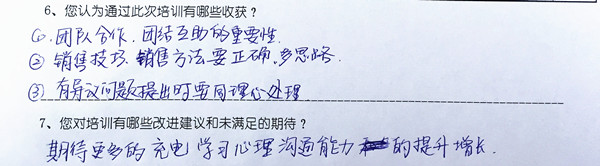 6、您认为通过此次培训有哪些收获?
①.团队合作.团结互助的重要性.
②销售技巧.销售方法要正确.多思路.
③有异议问题提出时要同理心处理
7、您对培训有哪些改进建议和未满足的期待?
期待更多的充电学习心理沟通能力的提升增长.